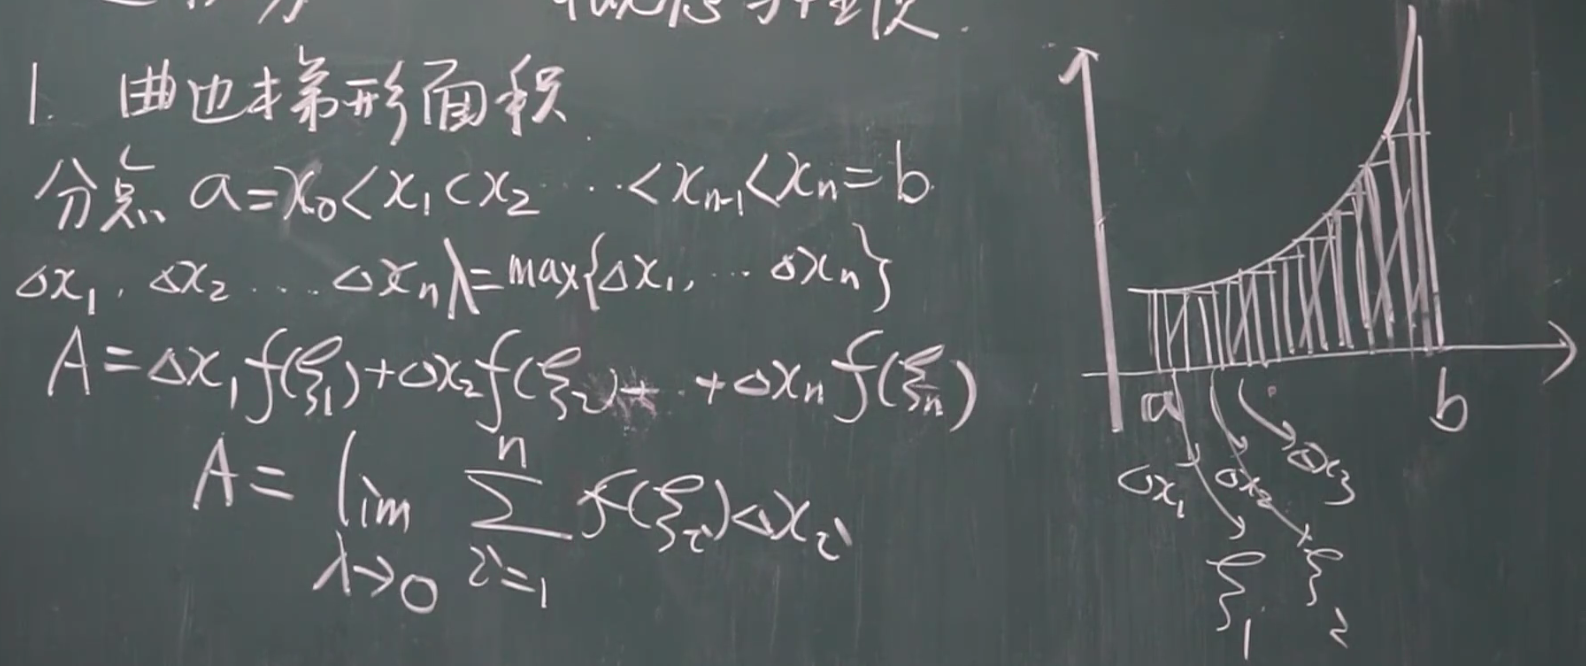 1. 曲边梯形面积
分点 a=x₀<x₁<x₂ ⋯ <xₙ₋₁<xₙ=b
Δx₁, Δx₂ ⋯ Δxₙ λ=max{Δx₁, ⋯ Δxₙ}
A=Δx₁f(ξ₁)+Δx₂f(ξ₂)+ ⋯ +Δxₙf(ξₙ)
A= lim λ→0 ∑ i=1 n f(ξᵢ)Δxᵢ
a b
Δx₁ Δx₂ Δx₃
ξ₁ ξ₂